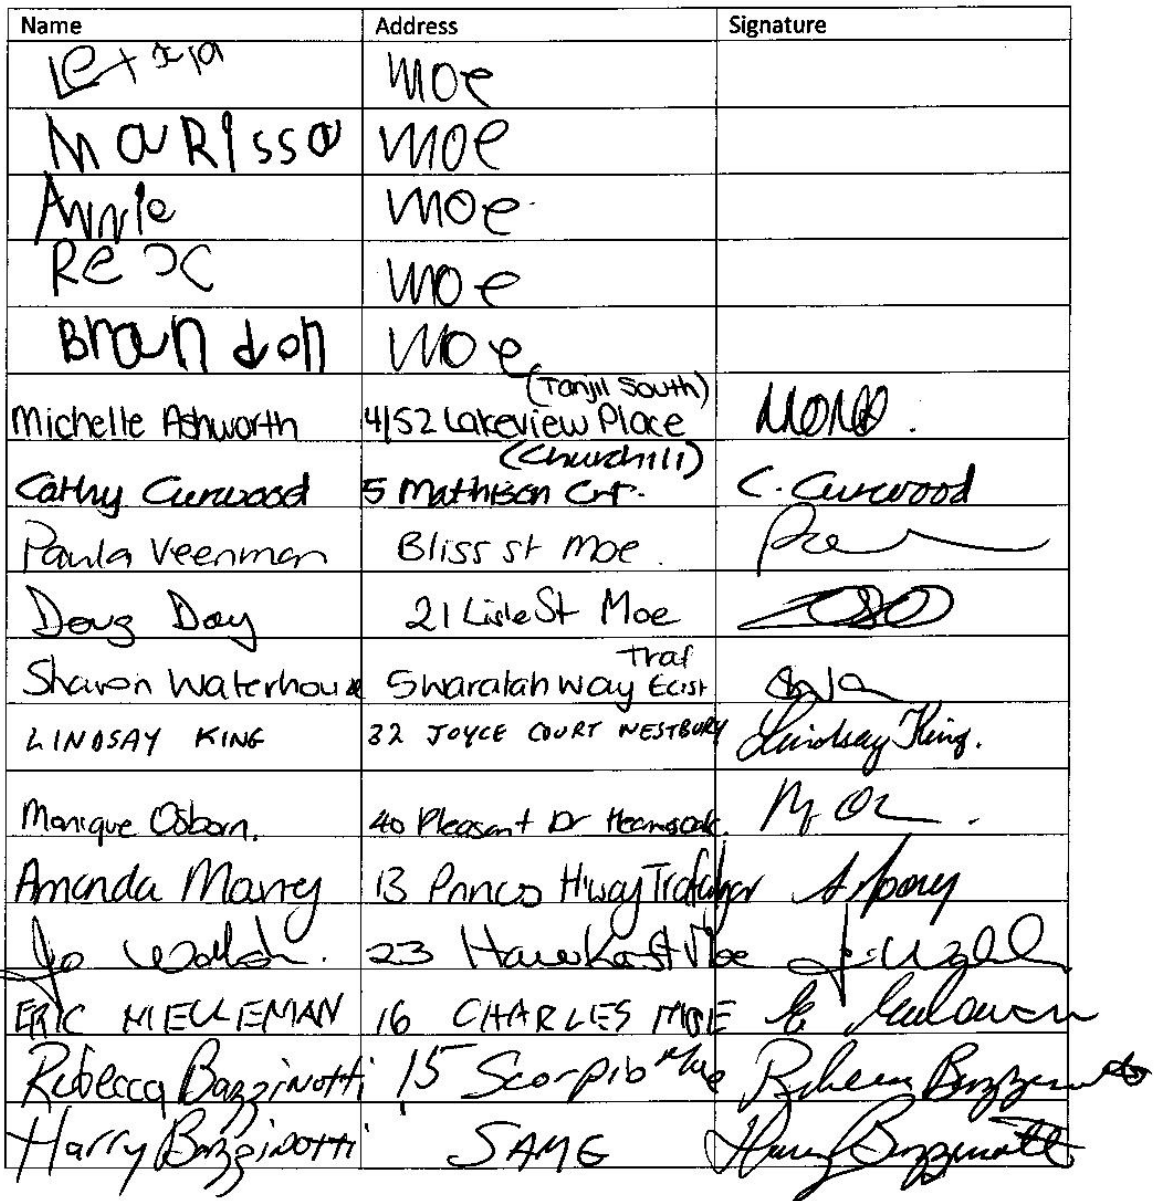 Name Address Signature
Moe
MaRissa Moe
Annie Moe
Rex Moe
Brandon Moe
(Tanjil South)
Michelle Ashworth 4/52 Lakeview Place
(Churchill)
Cathy Curwood 5 Mathison Crt. C. Curwood
Paula Veenman Bliss st Moe.
Doug Day 21 Lisle St Moe
Traf
Sharon Waterhouse 5 waratah way East
LINDSAY KING 32 JOYCE COURT WESTBURY Lindsay King.
Monique Osborn. 40 Pleasant Dr
Amanda 13 Princes H'way Trafalgar
Jo Walsh. 23 Moe
ERIC MIELLEMAN 16 CHARLES MOE
Rebecca Bazzinotti 15 Scorpio Moe Rebecca Bazzinotti
Harry Bazzinotti SAME Harry Bazzinotti